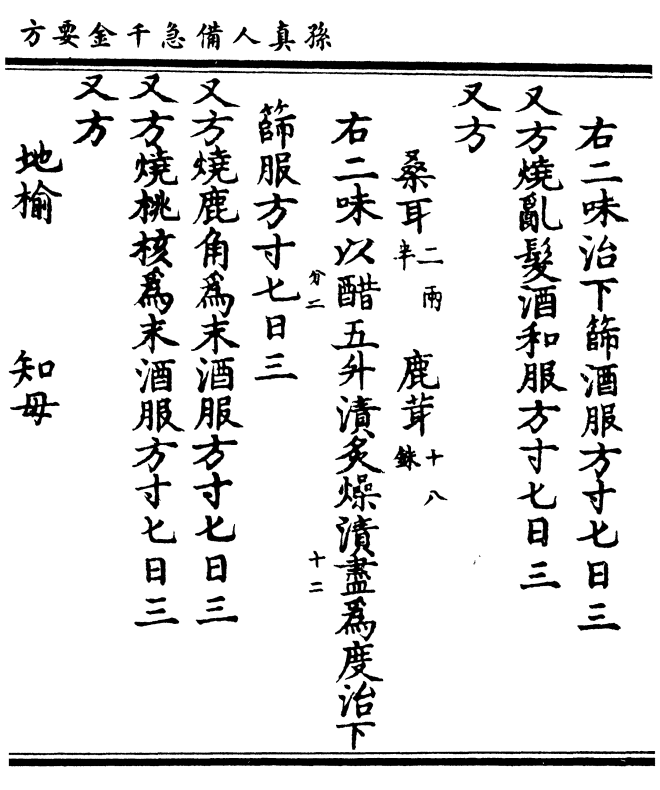 孫真人備急千金要方
右二味治下篩酒服方寸七日三
又方燒亂髮酒和服方寸七日三
又方
桑耳二兩半 鹿茸十八銖
右二味以醋五升漬炙燥漬盡爲度治下
分二 十二
篩服方寸七日三
又方燒鹿角爲末酒服方寸七日三
又方燒桃核爲末酒服方寸七日三
又方
地榆 知母